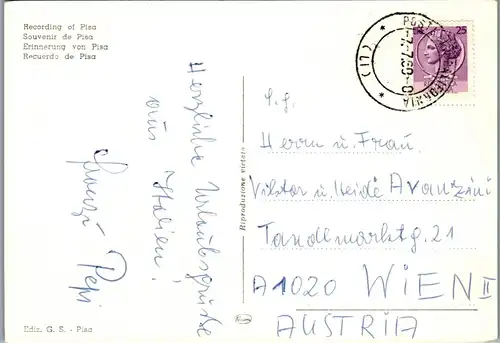 Recording of Pisa
Souvenir de Pisa
Erinnerung von Pisa
Recuerdo de Pisa
Herzliche Urlaubsgrüße
aus Italien!
Pepi
Ediz. G. S. - Pisa
Riproduzione vietata
25
S.g.
Herrn u. Frau
Viktor u. Heide Avanzini
Tandelmarktg. 21
A1020 WIEN II
AUSTRIA